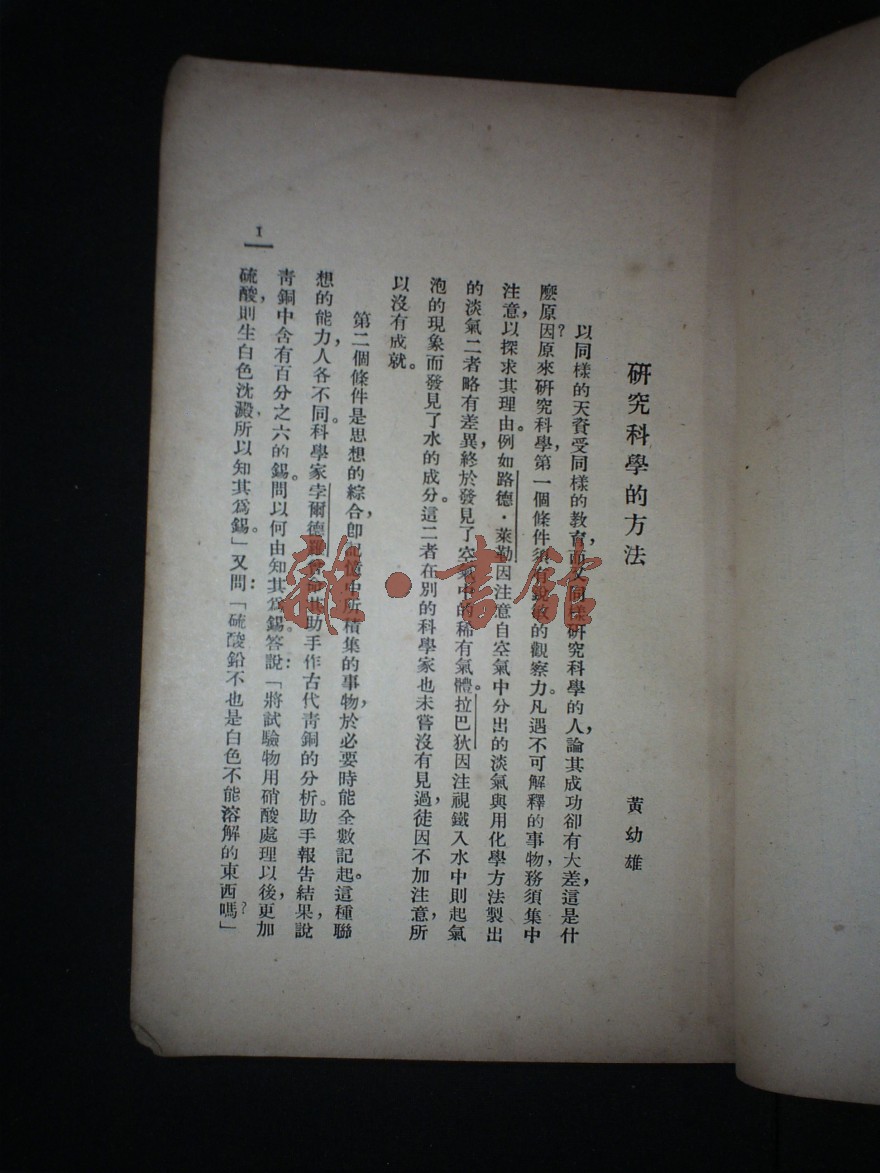 研究科學的方法
黃幼雄
以同樣的天資受同樣的教育,而又同樣研究科學的人,論其成功卻有大差,這是什
麼原因?原來研究科學,第一個條件須有銳敏的觀察力。凡遇不可解釋的事物,務須集中
注意,以探求其理由。例如路德·萊勒因注意自空氣中分出的淡氣與用化學方法製出
的淡氣二者略有差異,終於發見了空氣中的稀有氣體。拉巴狄因注視鐵入水中則起氣
泡的現象而發見了水的成分。這二者在別的科學家也未嘗沒有見過,徒因不加注意,所
以沒有成就。
第二個條件是思想的綜合,即記憶中所積集的事物,於必要時能全數記起。這種聯
想的能力,人各不同。科學家孛爾德羅嘗命其助手作古代青銅的分析。助手報告結果,說
青銅中含有百分之六的錫。問以何由知其為錫。答說:「將試驗物用硝酸處理以後,更加
硫酸,則生白色沈澱,所以知其為錫。」又問:「硫酸鉛不也是白色不能溶解的東西嗎?」
1
雜·書館